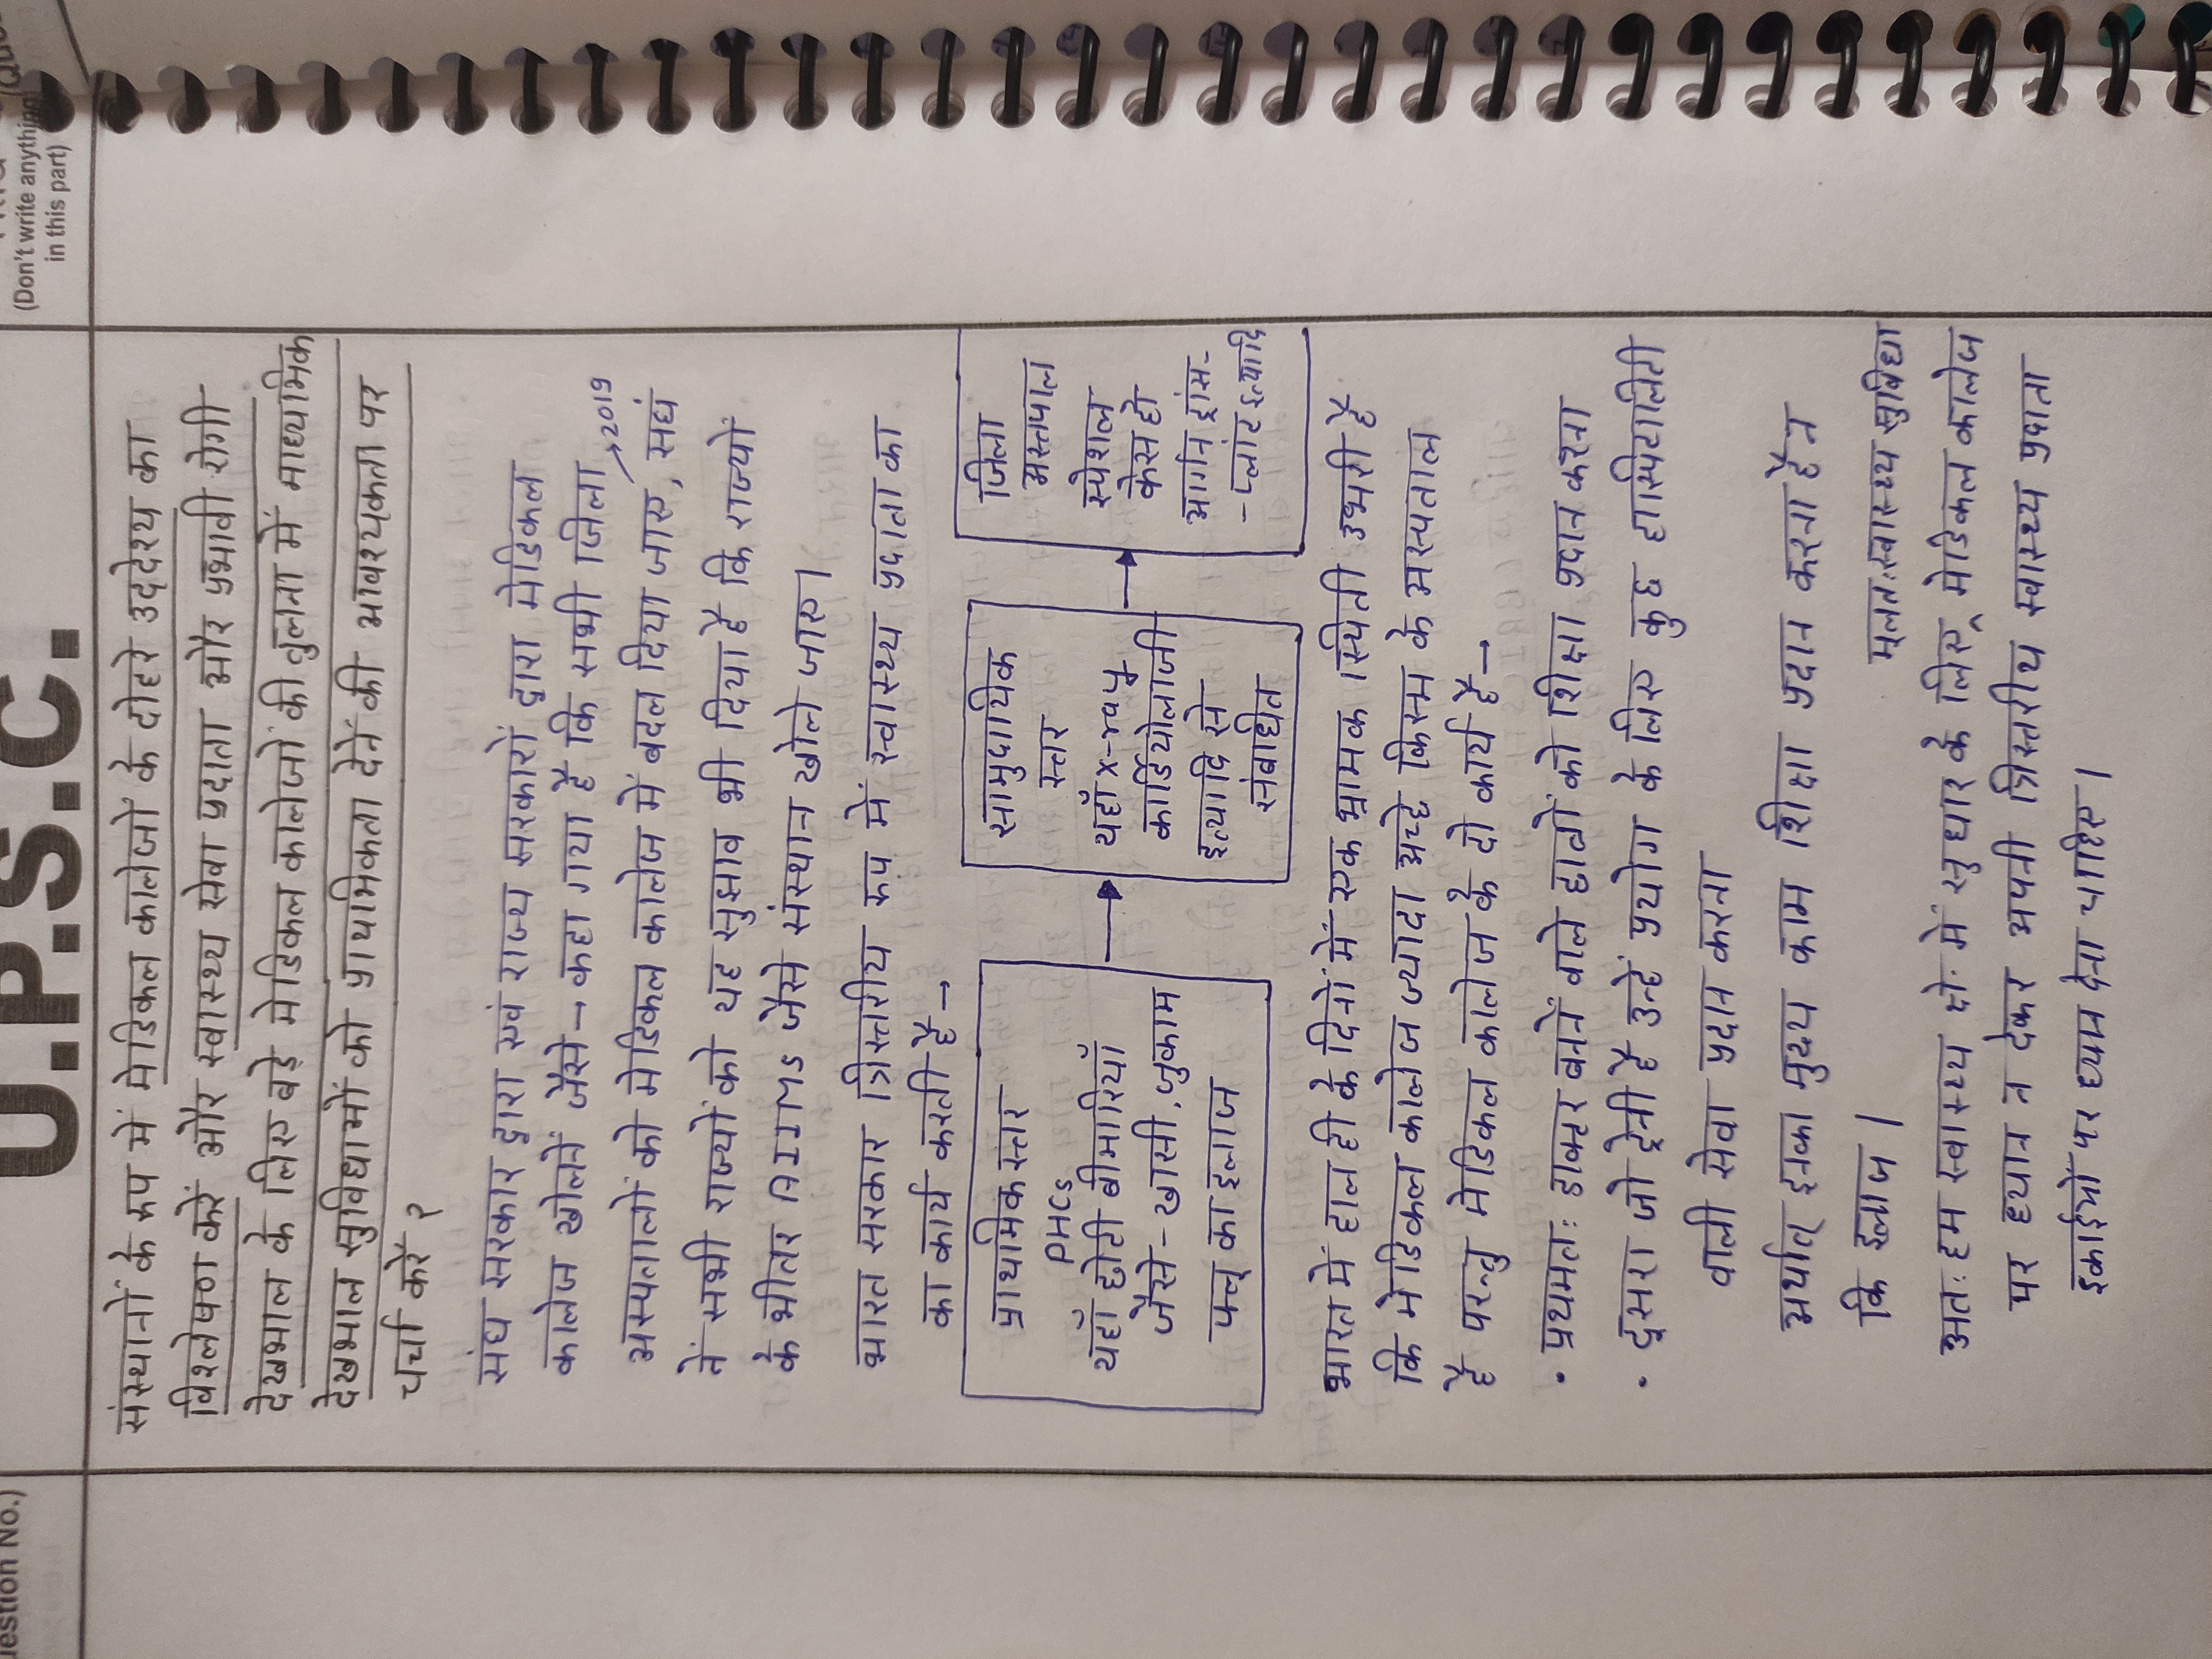 U.P.S.C.
(Don't write anything
in this part)
संस्थानों के रूप में मेडिकल कालेजों के दोहरे उद्देश्य का
विश्लेषण करें और स्वास्थ्य सेवा प्रदाता और प्रभावी रोगी
देखभाल के लिए बड़े मेडिकल कालेजों की तुलना में माध्यमिक
देखभाल सुविधाओं को प्राथमिकता देनें की आवश्यकता पर
चर्चा करें ?
संघ सरकार द्वारा एवं राज्य सरकारों द्वारा मेडिकल
कालेज खोलनें जैसे → कहा गया है कि सभी जिला
→2019
अस्पतालों को मेडिकल कालेज में बदल दिया जाए, संघं
नें सभी राज्यों को यह सुझाव भी दिया है कि राज्यों
के भीतर AIIMS जैसे संस्थान खोले जाए।
भारत सरकार त्रिस्तरीय रूप में स्वास्थ्य प्रदाता का
का कार्य करती है →
प्राथमिक स्तर
PHCs
यहाँ छोटी बीमारियाँ
जैसे - खासी, जुकाम
फ्लू का इलाज
सामुदायिक
स्तर
यहाँ x-ray
कार्डियोलाजी
इत्यादि से
संबधित
जिला
अस्तपाल
स्पेशल
केस हो
आर्गन ट्रांस-
- प्लांट इत्यादि
भारत में हाल ही के दिनों में एक भ्रामक स्थिती उभरी है
कि मेडिकल कालेज ज्यादा अच्छे किस्म के अस्पताल
है परन्तु मेडिकल कालेज के दो कार्य है →
• प्रथमतः डाक्टर बननें वाले छात्रों को शिक्षा प्रदान करना
• दूसरा जो ट्रेनी है उन्हें प्रयोग के लिए कुछ हास्पिटालिटी
वाली सेवा प्रदान करना
अर्थात् इनका मुख्य काम शिक्षा प्रदान करना है न
कि इलाज।
मूलतः स्वास्थ्य सुविधा
अतः हम स्वास्थ्य क्षे. में सुधार के लिए ^ मेडिकल कालेज
पर ध्यान न देकर अपनी त्रिस्तरीय स्वास्थ्य प्रदाता
इकाईयों पर ध्यान देना चाहिए।